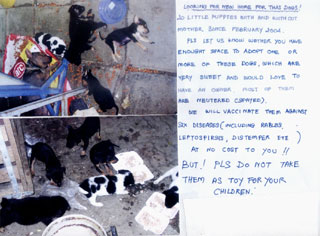 LOOKING FOR NEW HOME FOR THIS DOGS!
20 LITTLE PUPPIES WITH AND WITHOUT
MOTHER SINCE FEBRUARY 2004.
PLS LET US KNOW WHETHER YOU HAVE
ENOUGHT SPACE TO ADOPT ONE OR
MORE OF THESE DOGS, WHICH ARE
VERY SWEET AND WOULD LOVE TO
HAVE AN OWNER. MOST OF THEM
ARE NEUTERED (SPAYED).
WE WILL VACCIMATE THEM AGAINST
SIX DISEASES (INCLUDING RABIES,
LEPTOSPIROSIS, DISTEMPER ETC)
AT NO COST TO YOU !!
BUT! PLS DO NOT TAKE
THEM AS TOY FOR YOUR
CHILDREN.